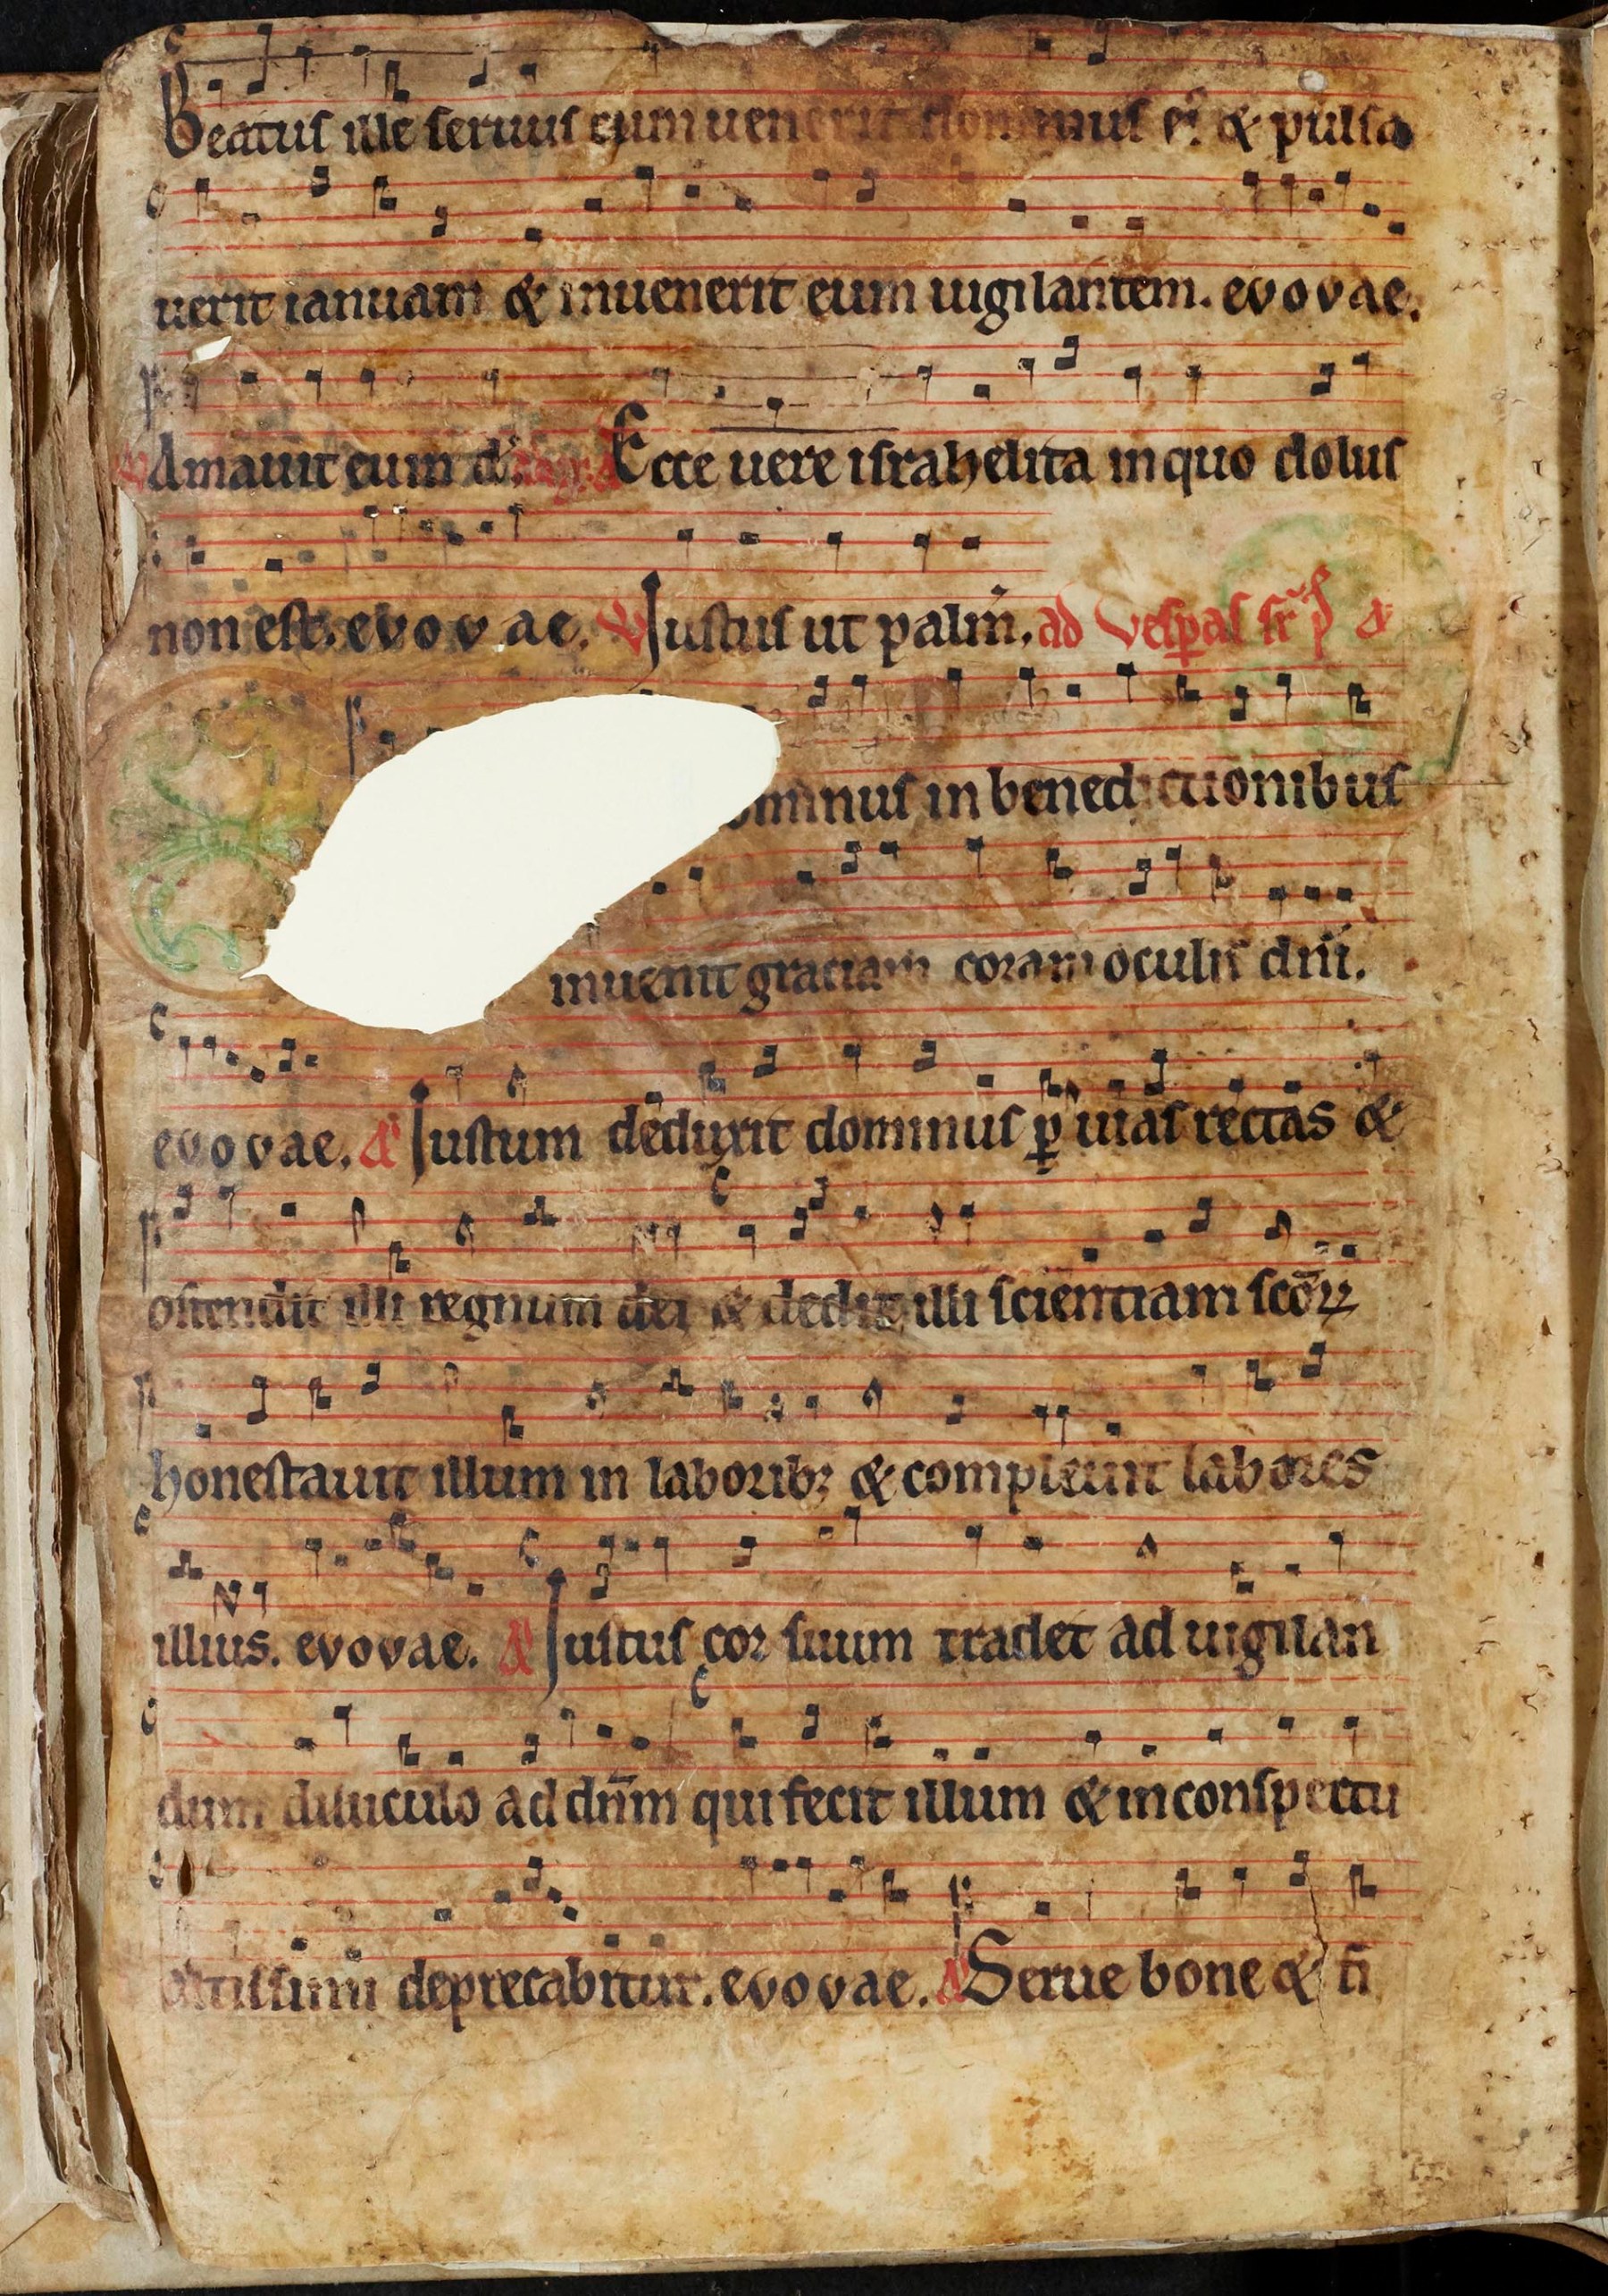 Beatus ille seruus cum uenerit dominus ei᷒ & pulsa
uerit ianuam & inuenerit eum uigilantem. evovae.
Amauit eum d. Ecce uere israhelita in quo dolus
non est. evovae. V Iustus ut palm̄. ad vesꝑas sr̄ p̄ A
ominus in benedictionibus
inuenit graciam coram oculis dn̄i.
evovae. A Iustum deduxit dominus ꝑ uias rectas &
ostendit illi regnum dei & dedit illi scientiam scōꝝ
honestauit illum in laborib; & compleuit labores
illius. evovae. A Iustus cor suum tradet ad uigilan
dum diluculo ad dn̄m qui fecit illum & in conspectu
altissimi deprecabitur. evovae. A Serue bone & fi